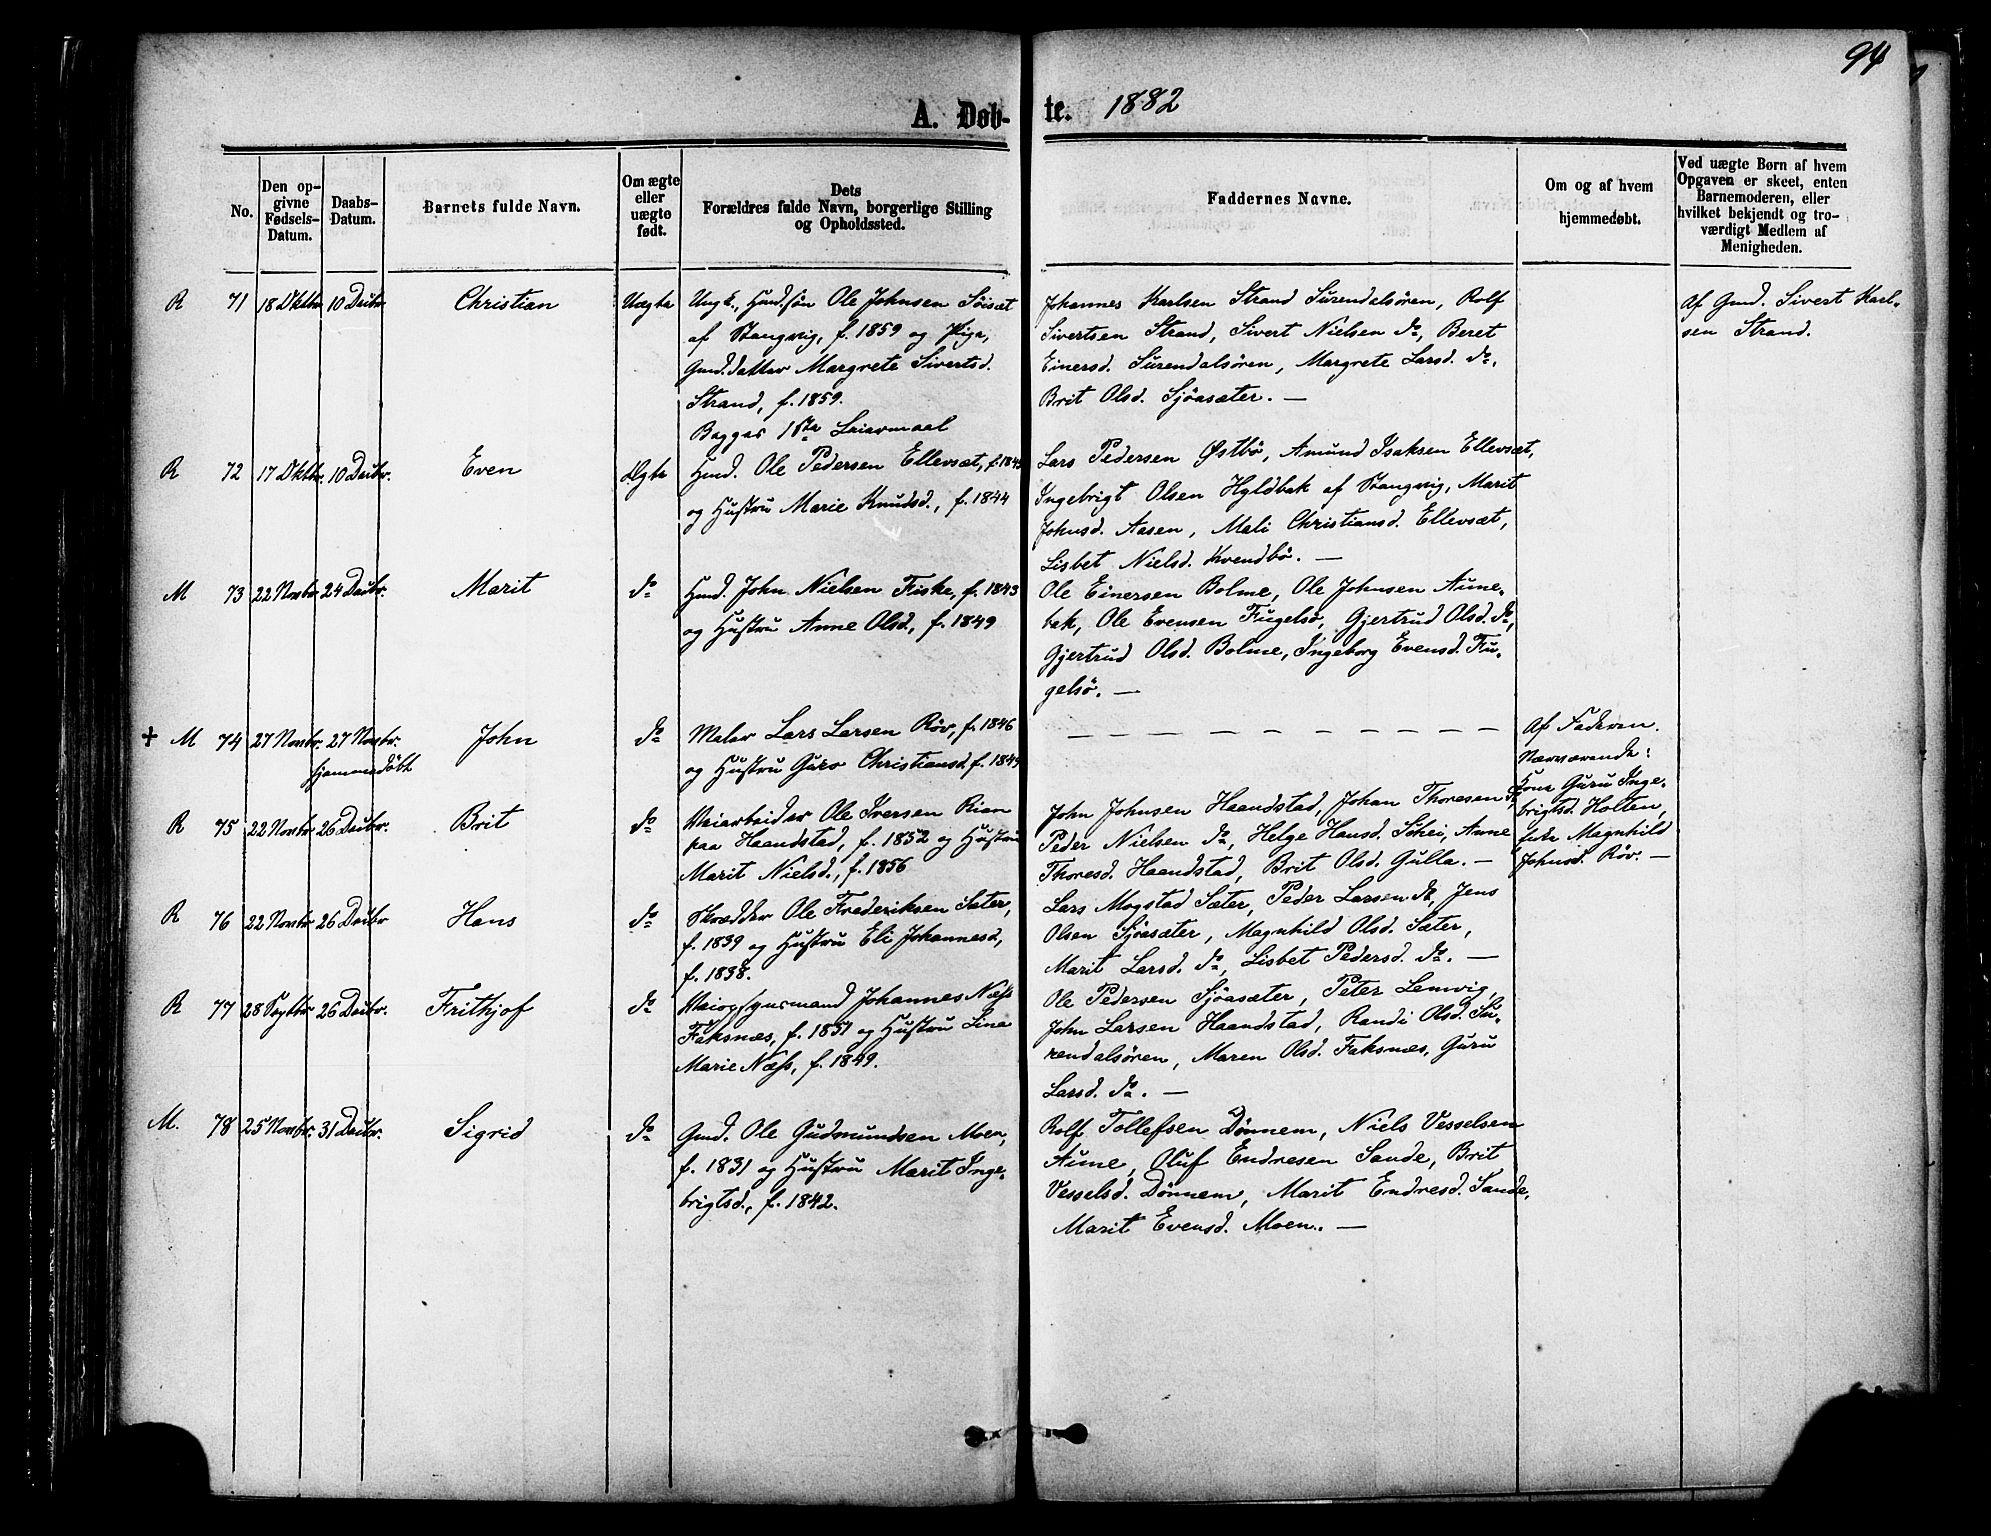 94
A. Døbte. 1882
No.
Den opgivne Fødsels-Datum.
Daabs-Datum.
Barnets fulde Navn.
Om ægte eller uægte født.
Dets Forældres fulde Navn, borgerlige Stilling og Opholdssted.
Faddernes Navne.
Om og af hvem hjemmedøbt.
Ved uægte Børn af hvem Opgaven er skeet, enten Barnemoderen, eller hvilket bekjendt og troværdigt Medlem af Menigheden.
R 71 18 Oktbr 10 Decbr Christian Uægte
Ungk., Gmd.søn Ole Johnsen Söisæt
af Stangvig, f. 1859 og Pige,
Gmd.datter Margrete Sivertsd.
Strand, f. 1859.
Begges 1ste Leiermaal
Johannes Karlsen Strand Surendalsören, Rolf
Sivertsen Strand, Sivert Nielsen do, Beret
Einersd. Surendalsören, Margrete Larsd. do.
Brit Olsd. Sjöasæter. —
Af Gmd. Sivert Karl-
sen Strand.
R 72 17 Oktbr. 10 Decbr. Even Ægte
Gmd. Ole Pedersen Ellevsæt, f. 1843
og Hustru Marie Knudsd., f. 1844
Lars Pedersen Østbö, Amund Isaksen Ellevsæt,
Ingebrigt Olsen Hyldbak af Stangvig, Marit
Johnsd. Aasen, Mali Christiansd. Ellevsæt,
Lisbet Nielsd. Kvendbö. —
M 73 22 Novbr 24 Decbr. Marit do
Gmd. John Nielsen Fiske, f. 1843
og Hustru Anne Olsd., f. 1849
Ole Einersen Bolme, Ole Johnsen Aune-
bak, Ole Evensen Fugelsö, Gjertrud Olsd. do,
Gjertrud Olsd. Bolme, Ingeborg Evensd. Fu-
gelsö. —
+ M 74 27 Novbr. 27 Novbr. hjemmedöbt John do
Maler Lars Larsen Röv, f. 1846
og Hustru Guro Christiansd. f. 1849
— — — — — — — — — —
Af Faderen.
Nærværende:
Kone Guru Inge-
brigtsd. Holten,
Enke Magnhild
Johnsd. Röv. —
R 75 22 Novbr 26 Decbr. Brit do
Veiarbeider Ole Iversen Rian
paa Haandstad, f. 1852 og Hustru
Marit Nielsd., f. 1856
John Johnsen Haandstad, Johan Thoresen do,
Peder Nielsen do, Helge Hansd. Söhei, Anne
Thoresd. Haandstad, Brit Olsd. Gulla. —
R 76 22 Novbr 26 Decbr Hans do
Skrædder Ole Frederiksen Sæter,
f. 1839 og Hustru Eli Johannesd.,
f. 1838.
Lars Mogstad Sæter, Peder Larsen do, Jens
Olsen Sjöasæter, Magnhild Olsd. Sæter,
Marit Larsd. do, Lisbet Pedersd. do. —
R 77 28 Septbr 26 Decbr. Frithjof do
Veiopsynsmand Johannes Næss
Faksnæs, f. 1851 og Hustru Lina
Marie Næss, f. 1849.
Ole Pedersen Sjöasæter, Peter Lemvig,
John Larsen Haandstad, Randi Olsd. Su-
rendalsören, Maren Olsd. Faksnæs, Guru
Larsd. do. —
M. 78 25 Novbr. 31 Decbr. Sigrid do
Gmd. Ole Gudmundsen Moen,
f. 1831 og Hustru Marit Inge-
brigtsd., f. 1842.
Rolf Tollefsen Dönnem, Niels Vesselsen
Aune, Oluf Endresen Sande, Brit
Vesselsd. Dönnem, Marit Endresd. Sande,
Marit Evensd. Moen. —